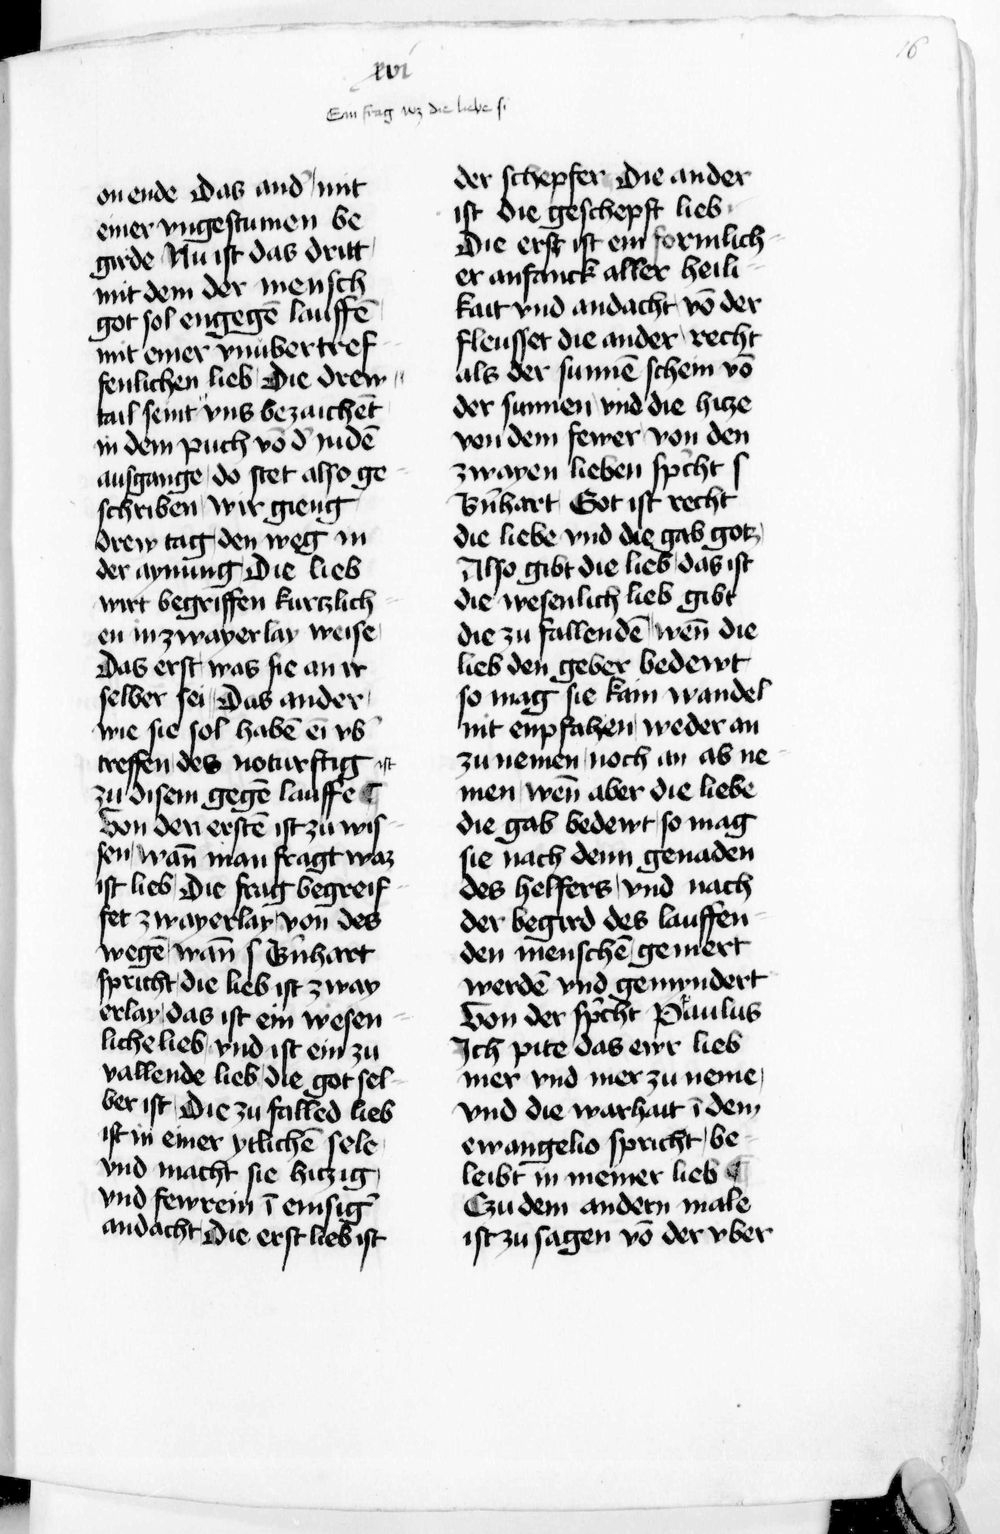 xvi
16
Ein frag wz die liebe si
on ende Das and' mit
einer vngestumen be
girde Nu ist das dritt
mit dem der mensch
got sol engegē lauffē
mit einer vnuber tref-
fenlichen lieb Die drew
tail seint vns bezaichēt
in dem puch vō d' judē
ausgange do stet also ge-
schriben wir gieng
drew tag den weg in
der aynung Die lieb
wirt begriffen kurtzlich-
en in zwayerlay weise
Das erst was sie an ir
selber sei Das ander
wie sie sol habē eī vb'
treffen des noturftig ist
zu disem gegē lauffē ¶
Von dem erstē ist zu wis-
sen wan̄ man fragt waz
ist lieb Die frag begreif-
fet zwayerlay von des
wegē wan̄ s Bn̄hart
spricht die lieb ist zway
erlay das ist ein wesen-
liche lieb vnd ist ein zu
vallende lieb die got sel-
ber ist Die zu falled lieb
ist in einer ytlichē sele
vnd macht sie hitzig
vnd fewrein ī emsig'
andacht Die erst lieb ist
der schepfer Die ander
ist die geschepft lieb
Die erst ist ein formlich-
er anfanck aller heili-
kait vnd andacht vō der
fleusset die ander recht
als der sunnē schein vō
der sunnen vnd die hitze
von dem fewer von den
zwayen lieben sp'cht s
Bn̄hart Got ist recht
die liebe vnd die gab gotz
Also gibt die lieb das ist
die wesenlich lieb gibt
die zu fallendē wen̄ die
lieb den geber bedewt
so mag sie kain wandel
nit enpfahen weder an
zu nemen noch an ab ne-
men wen̄ aber die liebe
die gab bedewt so mag
sie nach denn genaden
des helfers vnd nach
der begird des lauffen-
den menschē gemert
werdē vnd gemyndert
Von der sp'cht Paulus
Ich pite das ewr lieb
mer vnd mer zu neme
vnd die warhait ī dem
ewangelio spricht be-
leibt in meiner lieb ¶
Czu dem andern male
ist zu sagen vō der vber